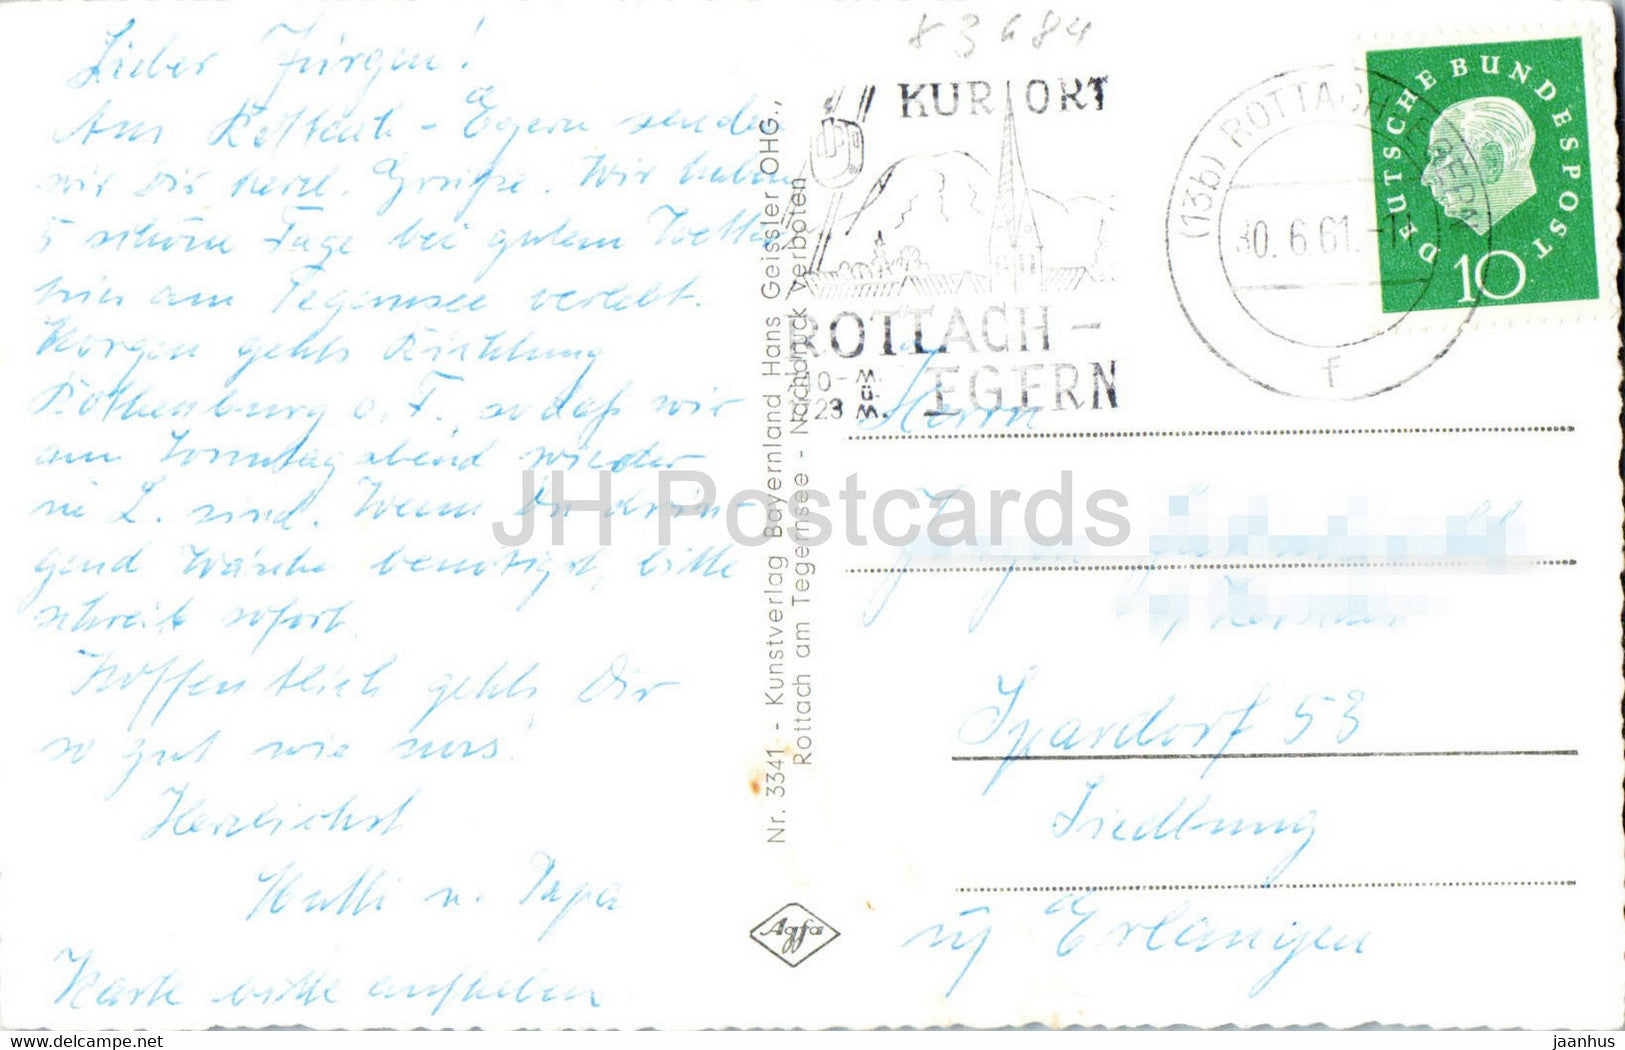 Lieber Jürgen!
Aus Rottach-Egern senden
wir Dir herzl. Grüße. Wir haben
5 schöne Tage bei gutem Wetter
hier am Tegernsee verlebt.
Morgen gehts Richtung
Rothenburg o. T., sodaß wir
am Sonntagabend wieder
in L. sind. Wenn Du drin-
gend Wäsche benötigst, bitte
schreib sofort.
Hoffentlich gehts Dir
so gut wie uns!
Herzlichst
Mutti u. Papa
Karte bitte aufheben
Nr. 3341 - Kunstverlag Bayernland Hans Geissler OHG.,
Rottach am Tegernsee - Nachdruck verboten
Agfa
83684
KURORT
ROTTACH-
EGERN
M.
ü.
M.
(13b) ROTTACH-EGERN
0.6.61.-11
f
DEUTSCHE BUNDESPOST
10
Herrn
Jürgen
Spardorf 53
Siedlung
ü/ Erlangen
JH Postcards
delcampe.net
jaanhus